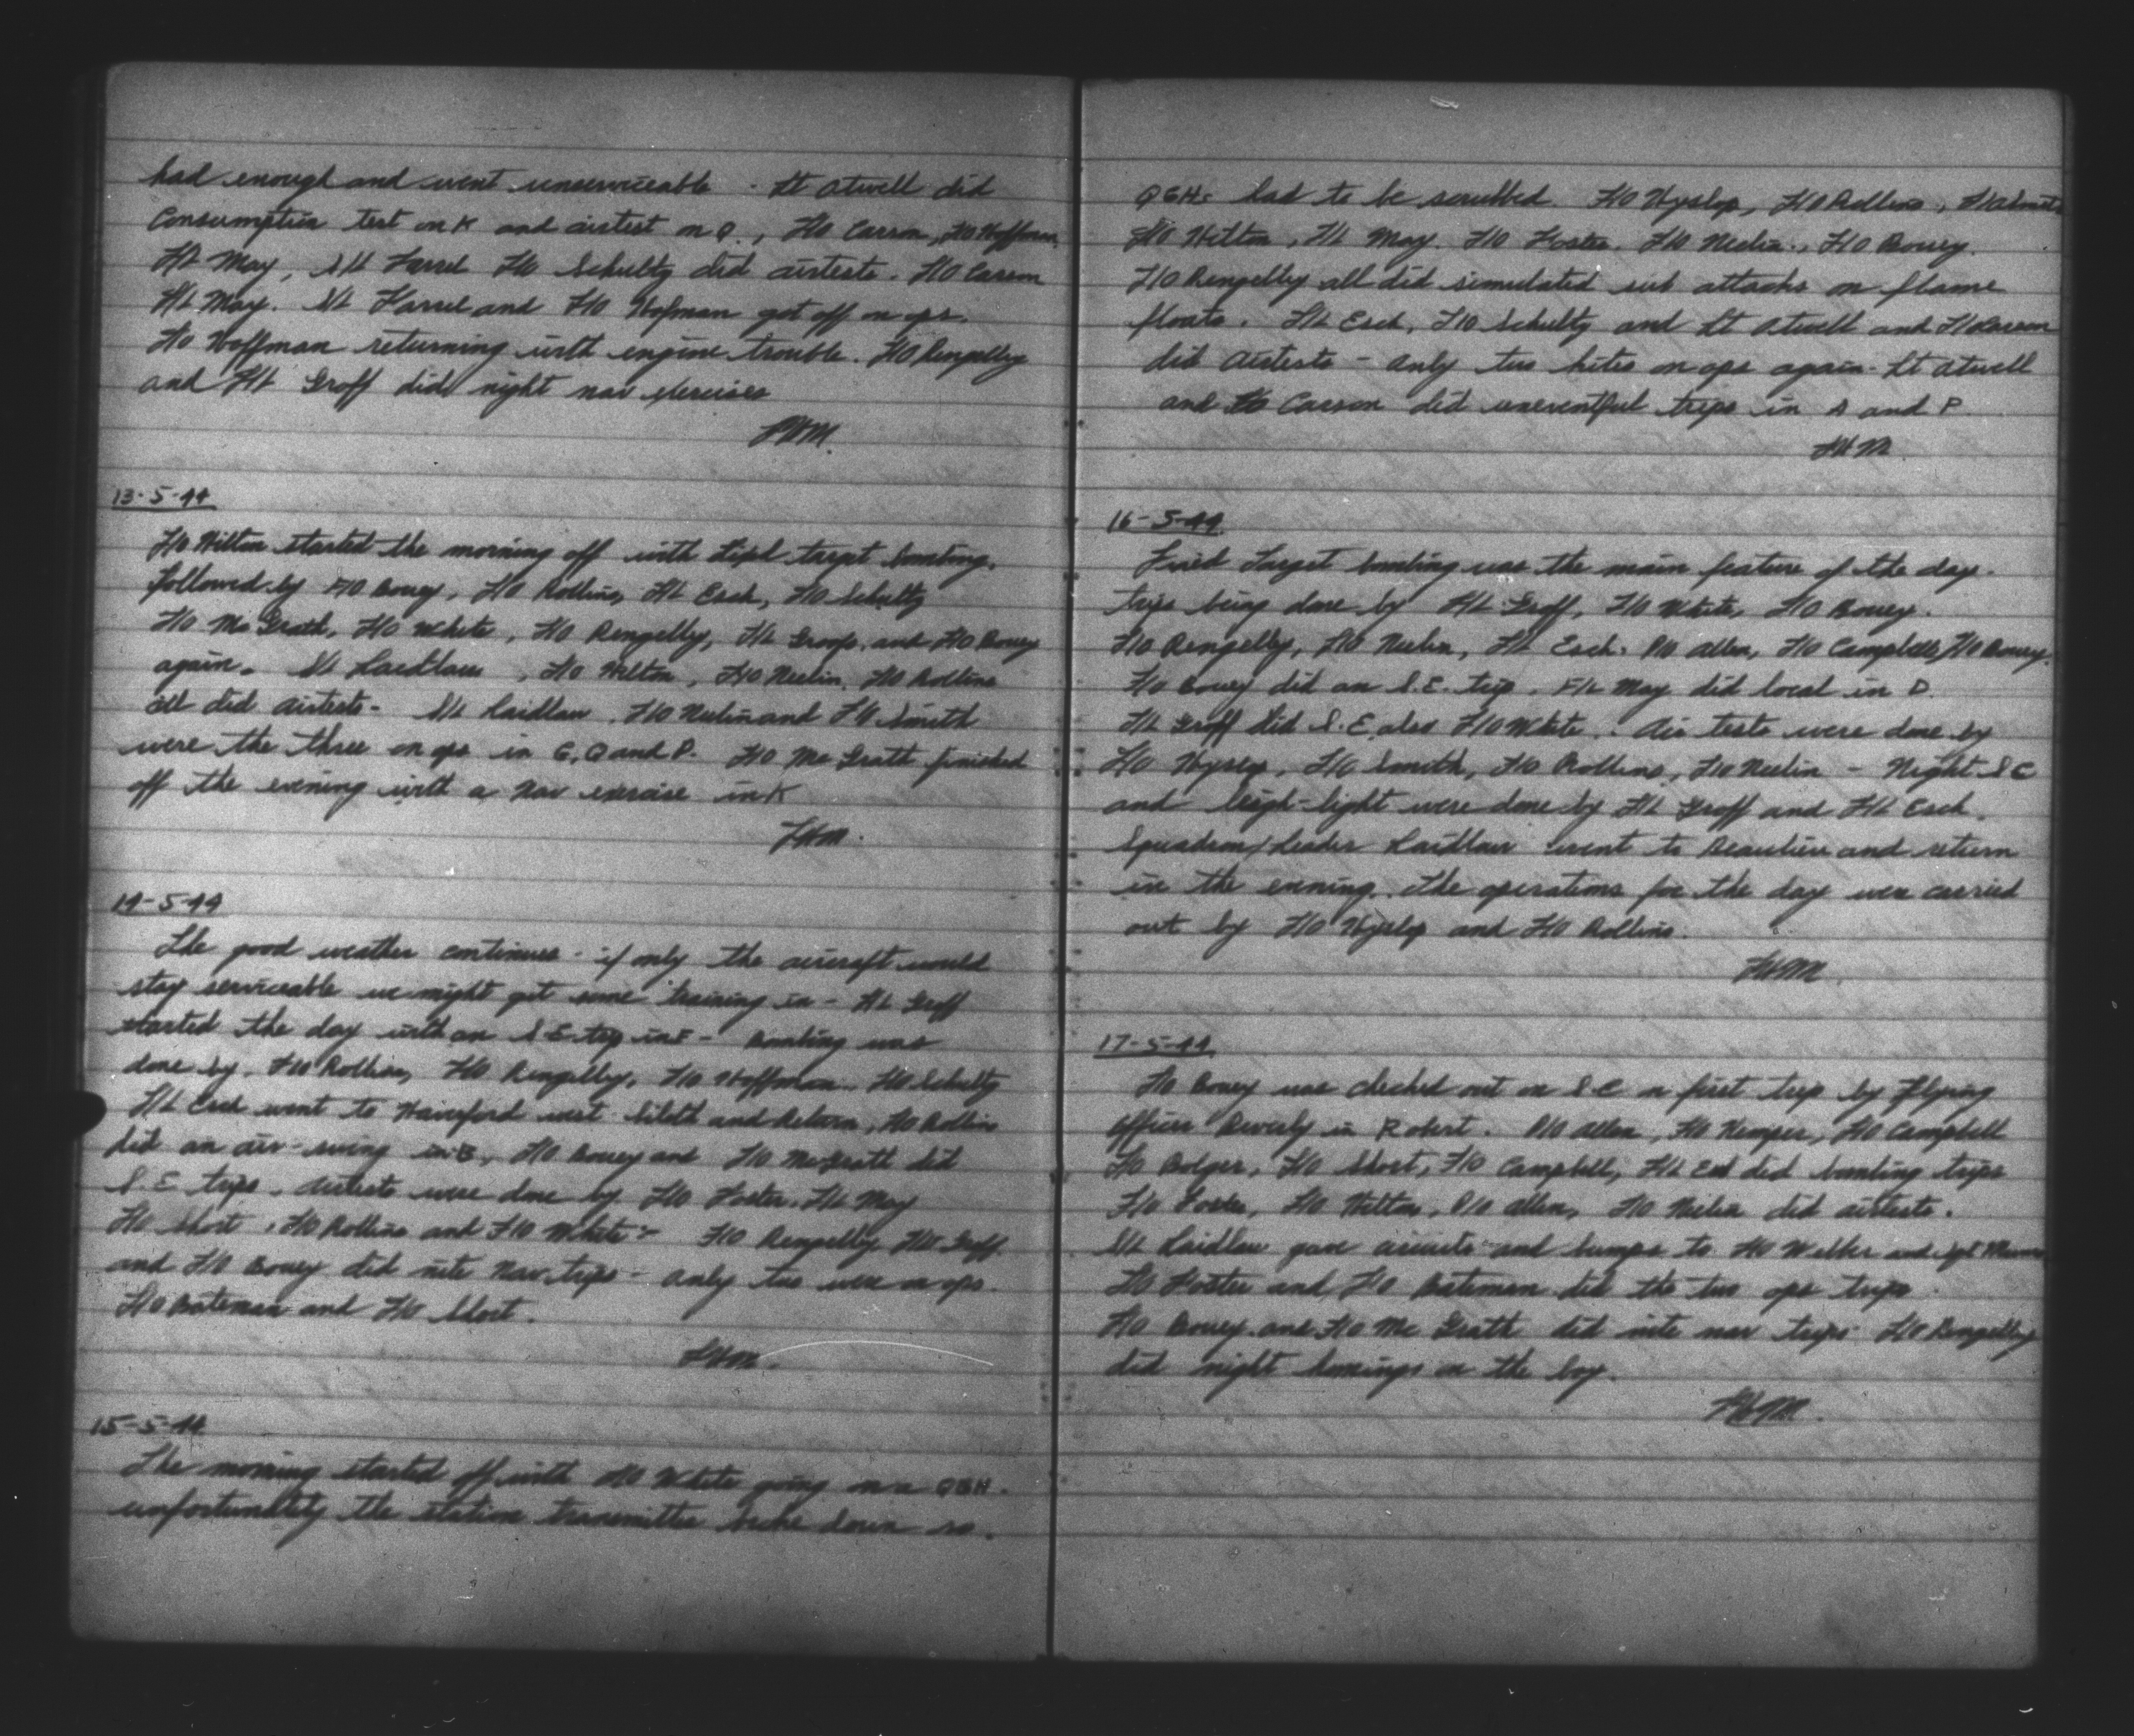 had enough and went unserviceable - Lt Atwell did
Consumption test on K and airtest on Q., F/O Carson, F/O Hoffman
F/L May, S/L Farrel F/O Schultz did airtests. F/O Carson
F/L May. S/L Farrel and F/O Hofman got off on ops.
F/O Hoffman returning with engine trouble. F/O Rengelley
and F/L Groff did night nav exercises
13-5-44
F/O Hilton started the morning off with Fixed target bombing.
followed by F/O Bouey, F/O Rollins, F/L Esch, F/O Schultz
F/O McGrath, F/O White, F/O Pengelly, F/L Groff, and F/O Bouey
again. S/L Laidlaw, F/O Hilton, F/O Neelin, F/O Rollins
all did airtests - S/L Laidlaw. F/O Neelin and F/O Smith
were the three on ops in G, Q and P. F/O McGrath finished
off the evening with a Nav exercise in K
14-5-44
The good weather continues - if only the aircraft would
stay serviceable we might get some training in - F/L Groff
started the day with an S.E. trip in F - Bombing was
done by. F/O Rollins, F/O Pengelly, F/O Hoffman, F/O Schultz
F/L Esch went to Haverford west Siloth and Return, F/O Rollins
did an air-swing in B, F/O Bouey and F/O McGrath did
S.E. trips. Airtests were done by F/O Foster, F/L May
F/O Short, F/O Rollins and F/O White - F/O Pengelly F/L Groff
and F/O Bouey did nite Nav trips - only two were on ops.
F/O Bateman and F/O Short.
15-5-44
The morning started off with F/O White going on a QGH.
unfortunately the station transmitter broke down so.
QGHs had to be scrubbed. F/O Hyslop, F/O Rollins,
F/O Hilton, F/L May. F/O Foster. F/O Neelin, F/O Bouey.
F/O Pengelly all did simulated sub attacks on flame
floats. F/L Esch, F/O Schultz and Lt Atwell and F/O Carson
did airtests - only two kites on ops again - Lt Atwell
and F/O Carson did uneventful trips in A and P
16-5-44
Fixed Target bombing was the main feature of the day.
trips being done by F/L Groff, F/O White, F/O Bouey.
F/O Pengelly, F/O Neelin, F/L Esch. P/O Allen, F/O Campbell, F/O Bouey.
F/O Bouey did an S.E. trip. F/L May did local in D.
F/L Groff did S.E. also F/O White. Air tests were done by
F/O Hyslop, F/O Smith, F/O Rollins, F/O Neelin - Night S E
and leigh-light were done by F/L Groff and F/L Esch.
Squadron/Leader Laidlaw went to Beaulieu and return
in the evening. The operations for the day were carried
out by F/O Hyslop and F/O Rollins.
17-5-44
F/O Bouey was checked out on S.E on first trip by Flying
Officer Beverly in Robert. P/O Allen, F/O Kemper, F/O Campbell
F/O Bolger, F/O Short, F/O Campbell, F/L Esch did bombing trips
F/O Foster, F/O Hilton, P/O Allen, F/O Neelin did airtests.
S/L Laidlaw gave circuits and bumps to F/O Welber and Sgt
F/O Foster and F/O Bateman did the two ops trips.
F/O Bouey and F/O McGrath did nite nav trips F/O Pengelly
did night homings on the boy.